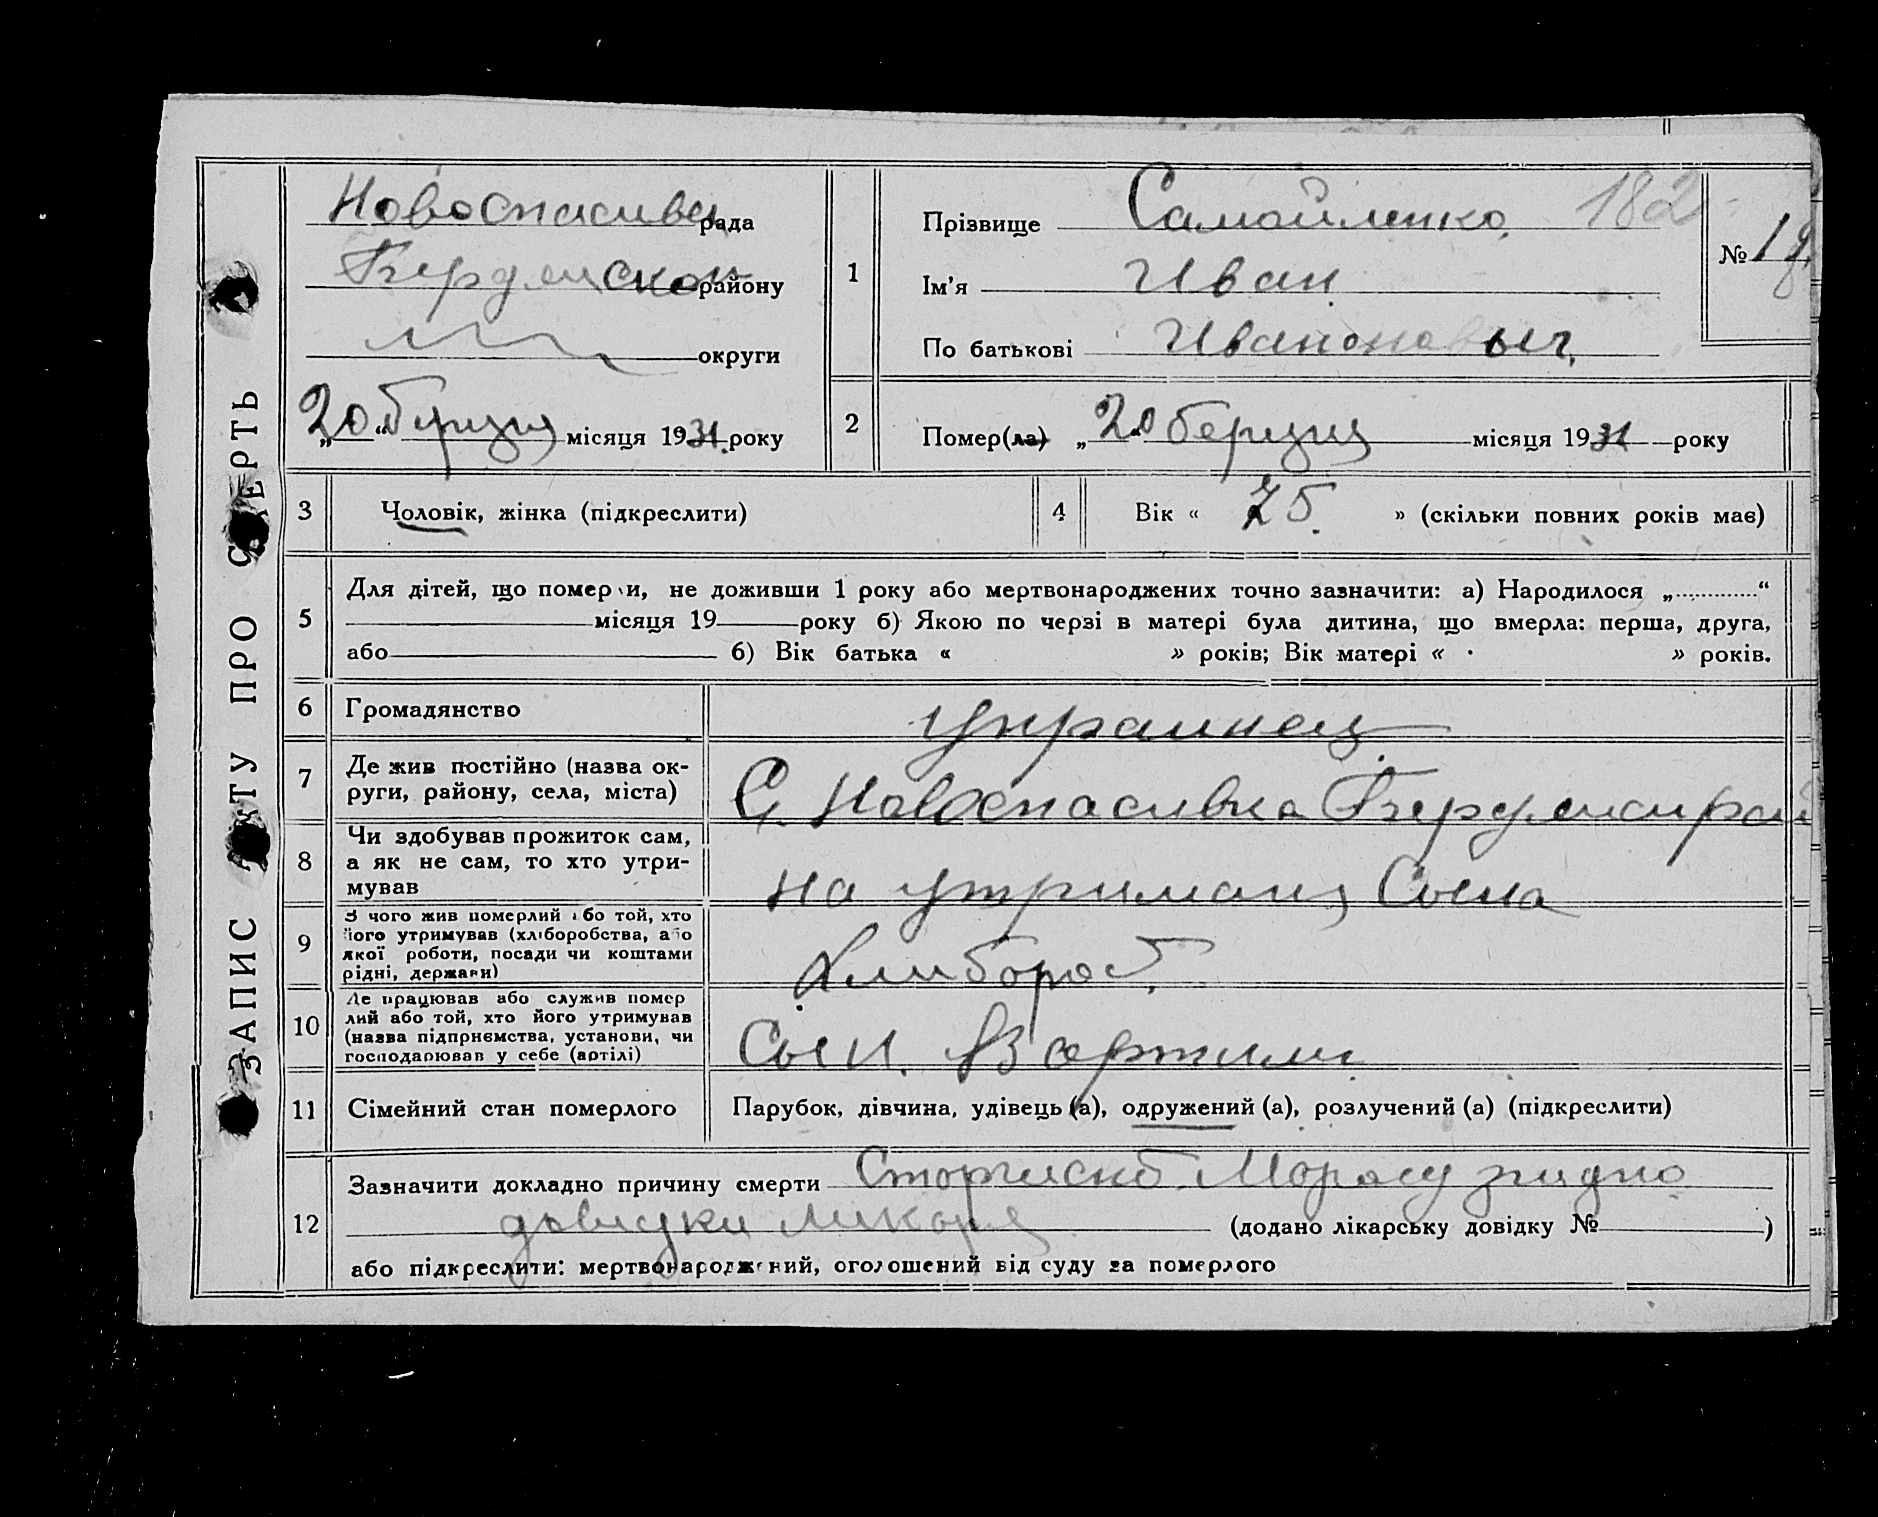 ЗАПИС АКТУ ПРО СМЕРТЬ
Новоспасивка рада
Бердянской району
округи
„20“ березня місяця 1931 року
1
Прізвище Самойленко 182
Ім'я Иван
По батькові Иванонович
№ 18
2
Помер(ла) „20“ березня місяця 1931 року
3 Чоловік, жінка (підкреслити)
4 Вік « 75 » (скільки повних років має)
5 Для дітей, що померли, не доживши 1 року або мертвонароджених точно зазначити: а) Народилося „............“
місяця 19 року б) Якою по черзі в матері була дитина, що вмерла: перша, друга,
або 6) Вік батька « » років; Вік матері « » років.
6 Громадянство украинец
7 Де жив постійно (назва ок-
руги, району, села, міста) С. Новоспасивка Бердянск рай
8 Чи здобував прожиток сам,
а як не сам, то хто утри-
мував на утримания Сына
9 З чого жив померлий або той, хто
його утримував (хліборобства, або
якої роботи, посади чи коштами
рідні, держави) Хлибороб.
10 Де працював або служив помер
лий або той, хто його утримував
(назва підприємства, установи, чи
господарював у себе (артілі) Сын. В артили
11 Сімейний стан померлого Парубок, дівчина, удівець (а), одружений (а), розлучений (а) (підкреслити)
12 Зазначити докладно причину смерти згидно
довидки ликаря (додано лікарську довідку № )
або підкреслити: мертвонароджений, оголошений від суду за померлого